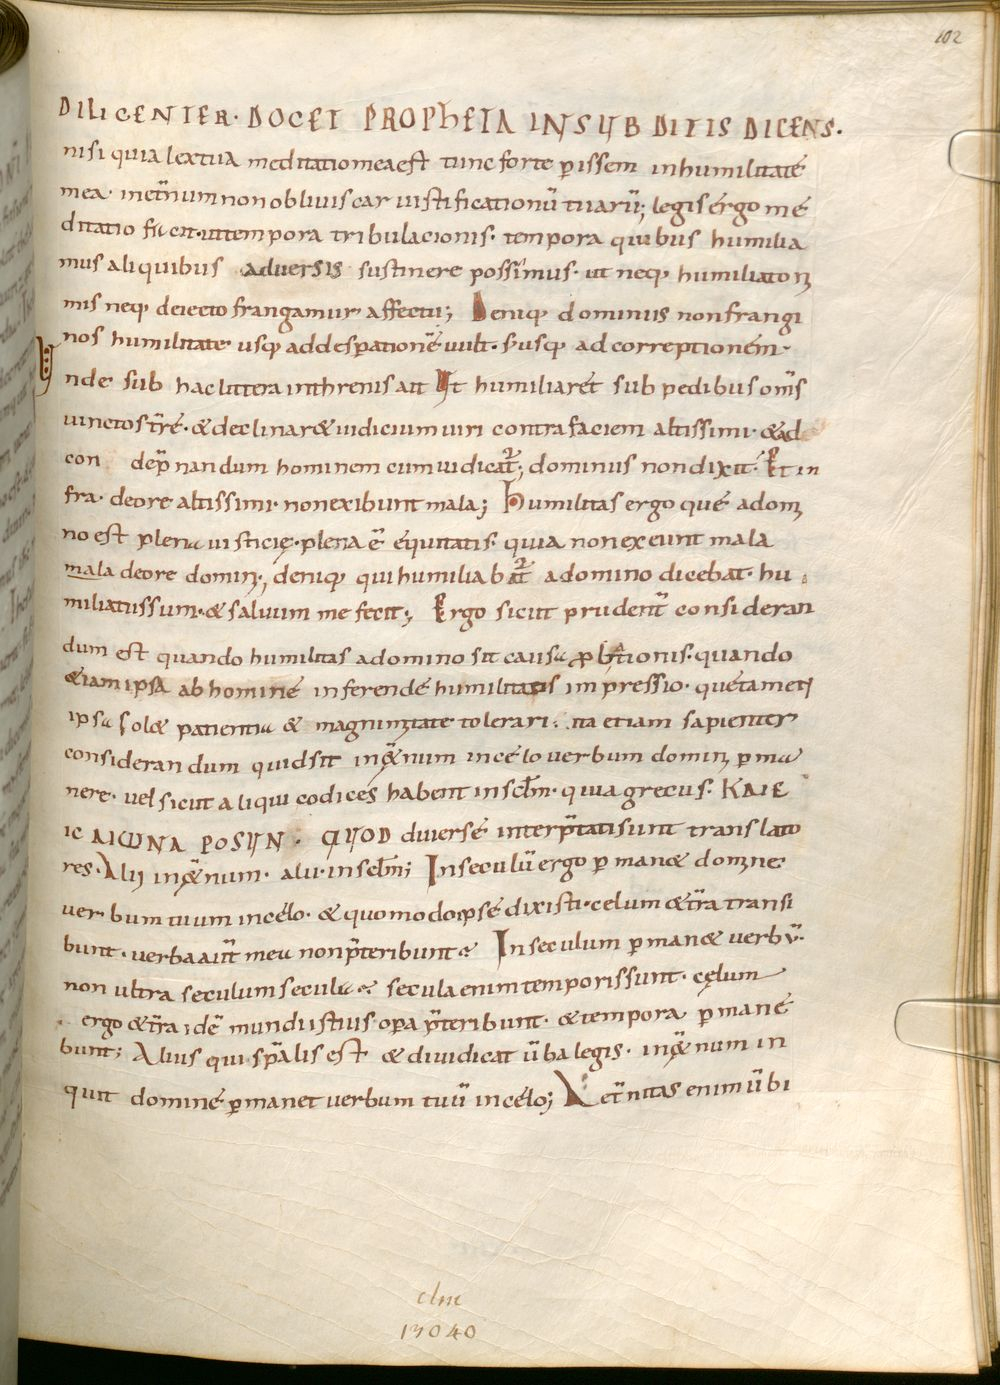 102
DILIGENTER. DOCET PROPhETA IN SUBDITIS DICENS.
nisi quia lex tua meditatio mea est tunc forte ꝑissem in humilitate
mea. in et̃num non obliviscar iustificationũ tuarũ; legis ergo me
ditatio facit. ut tempora tribulacionis. tempora quibus humilia
mus aliquibus adversis sustinere possimus. ut neq; humiliatoʒ
mis neq; deiecto frangamur affectu; Deniq; dominus non frangi
nos humilitate usq; ad desꝑationẽ vult. s; usq; ad correptionem.
Unde sub hac littera in threnis ait Ut humiliaret sub pedibus om̃s
vinctos t̃re. & declinar& iudicium viri contra faciem altissimi. & ad
con dep̃nandum hominem cum iudicat̃; dominus non dixit. Et in
fra. de ore altissimi. non exibunt mala; humilitas ergo que a domʒ
no est plena iusticię. plena ẽ equitatis. quia non exeunt mala
mala de ore dominʒ; deniq; qui humiliabat̃ a domino dicebat. hu
miliatus sum. & salvum me fecit; Ergo sicut prudent̃ consideran
dum est quando humilitas a domino sit causa ꝓbationis. quando
&iam ipsa ab homine inferende humilitatis impressio. que tametsi
ipsa sol& patientia & magnimʒtate tolerari. ita etiam sapienter
considerandum quid sit in et̃num in celo verbum dominʒ ꝑma
nere. vel sicut aliqui codices habent in sc̃lm. quia grecus. KAIE
IC AIωNA POSUN. QUOD diverse interp̃tati sunt translato
res. Alij in et̃num. alii. in sc̃lm; In seculũ ergo ꝑman& domʒne
verbum tuum in celo. & quomodo ipse dixisti. celum & t̃ra transi
bunt. verba aut̃ mea non p̃teribunt. In seculum ꝑman& verbũ.
non ultra seculum secula. secula enim temporis sunt. cęlum
ergo & t̃ra idẽ mundi istius oꝑa p̃teribunt. & tempora ꝑmane
bunt; Alius qui sp̃alis est & diiudicat ũba legis. in et̃num in
quit domine ꝑmanet verbum tuũ in celo; Aet̃nitas enim ũbi
clm
13040